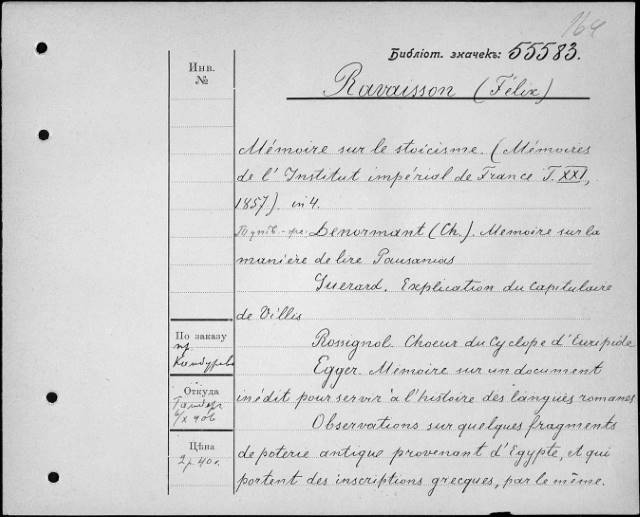 164
Библіот. значекъ: 55583.
Инв.
№
Ravaisson (Félix)
Mémoire sur le stoïcisme. (Mémoires
de l'Institut impérial de France T. XXI,
1857). in 4.
Lenormant (Ch.). Memoire sur la
manière de lire Pausanias
Guerard. Explication du Capitulaire
de Villis
По заказу
пр.
Rossignol. Choeur du Cyclope d'Euripide
Egger. Mémoire sur un document
Откуда
inédit pour servir à l'histoire des langues romanes
Observations sur quelques fragments
Цѣна
2 р 40 к
de poterie antique provenant d'Egypte, et qui
portent des inscriptions grecques, par le même.